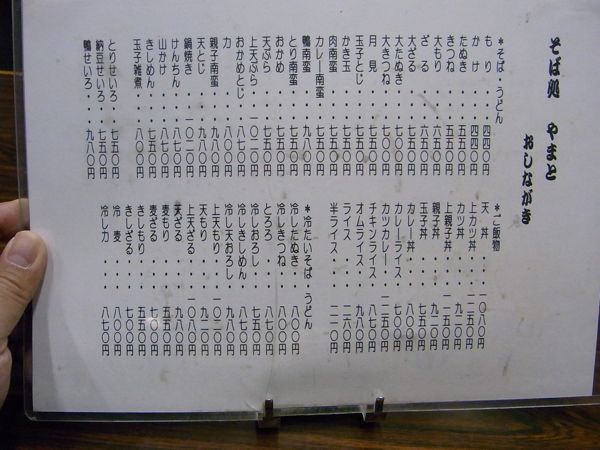 そば処 やまと
おしながき
*そば・うどん
もり・・・四四〇円
かけ・・・四四〇円
たぬき・・五五〇円
きつね・・五五〇円
大もり・・
ざる・・・
大ざる・・
大たぬき・七〇〇円
大きつね・七〇〇円
月見・・・
玉子とじ・七五〇円
かき玉・・七五〇円
肉南蛮・・七五〇円
カレー南蛮・七五〇円
鴨南蛮・・九八〇円
とり南蛮・七五〇円
おかめ・・七五〇円
天ぷら・・七五〇円
上天ぷら・一〇二〇円
おかめとじ・八七〇円
力・・・・八〇〇円
親子南蛮・九八〇円
天とじ・・九八〇円
鍋焼き・・一〇二〇円
けんちん・八七〇円
山かけ・・八七〇円
きしめん・七五〇円
玉子雑煮・八〇〇円
とりせいろ・七五〇円
納豆せいろ・七五〇円
鴨せいろ・・九八〇円
*ご飯物
天丼・・・一〇八〇円
上カツ丼・一二五〇円
カツ丼・・九二〇円
上親子丼・一二五〇円
親子丼・・九二〇円
玉子丼・・七五〇円
カレー丼・八〇〇円
カレーライス・七〇〇円
カツカレー・一二五〇円
チキンライス・八七〇円
オムライス・九八〇円
ライス・・二六〇円
半ライス・二一〇円
*冷たいそば・うどん
冷したぬき・八〇〇円
冷しきつね・八〇〇円
とろろ・・八七〇円
冷しおろし・七五〇円
冷しきしめん・八七〇円
冷し天おろし・九八〇円
上天もり・一〇二〇円
天もり・・九二〇円
上天ざる・一〇八〇円
天ざる・・九八〇円
麦もり・・五五〇円
麦ざる・・七〇〇円
きしもり・五五〇円
きしざる・七〇〇円
冷麦・・・八〇〇円
冷し力・・八七〇円